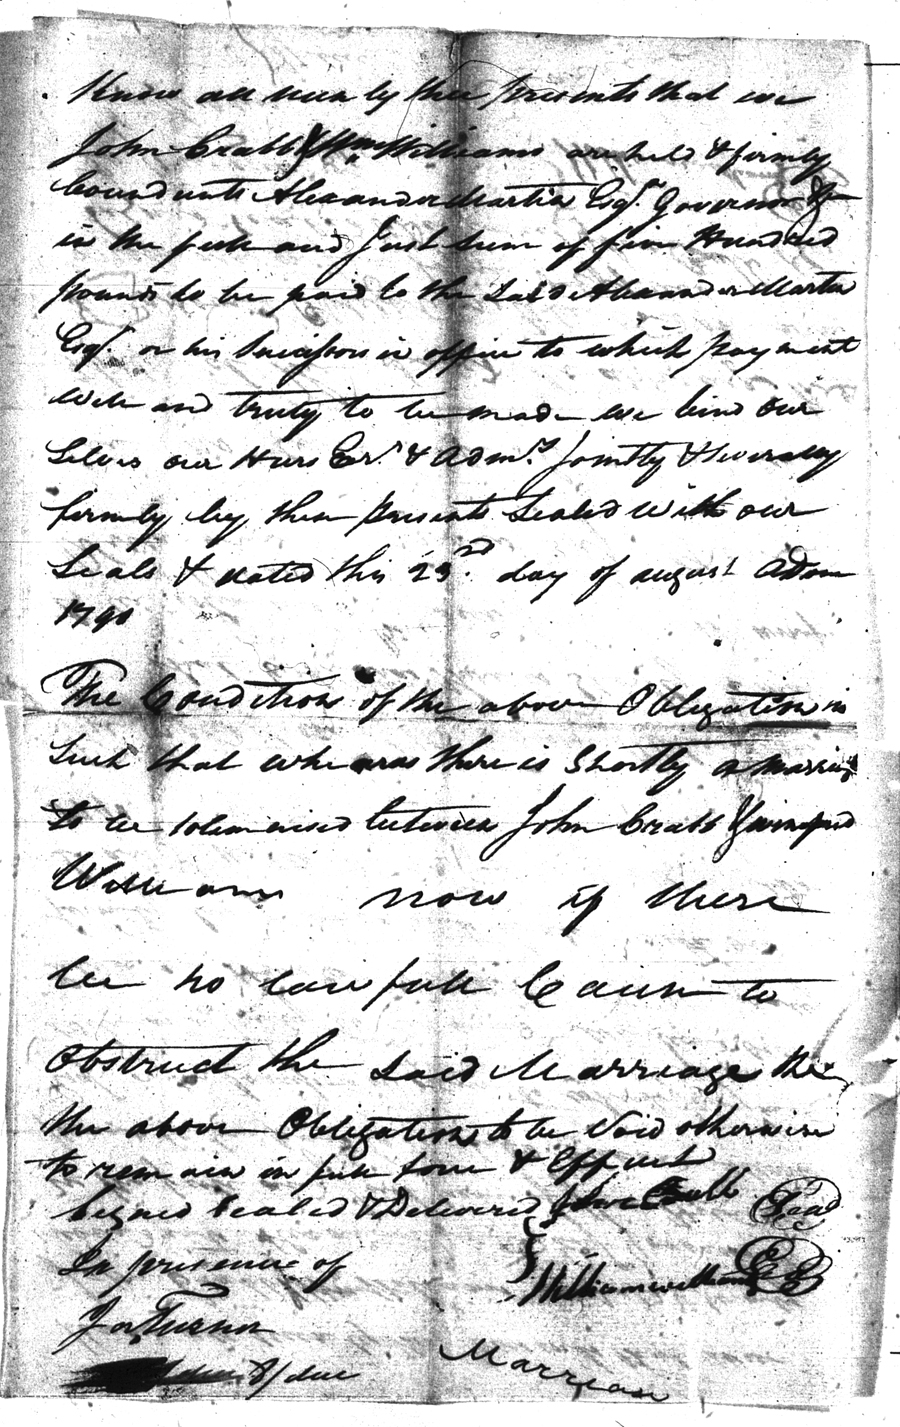 Know all men by these presents that we
John Crabb & Wm Williams are held & firmly
bound unto Alexander Martin Esqr. Governor &c
in the full and Just sum of five Hundred
pounds to be paid to the said Alexander Martin
Esqr. or his Successors in office to which payment
well and truly to be made we bind our
Selves our Heirs Exr.s & Adm.s Jointly & severally
firmly by these presents Sealed with our
Seals & dated this 23rd. day of august Adom
1790
The Condition of the above Obligation is
Such that whereas there is Shortly a marriage
to be solemnised between John Crabb & winefred
Williams now if there
be no lawfull Cause to
Obstruct the said Marriage then
the above Obligation to be Void otherwise
to remain in full force & Effect
Signed Sealed & Delivered John Crabb Seal
In presence of William williams
Jas Turner
8/ due Marrian